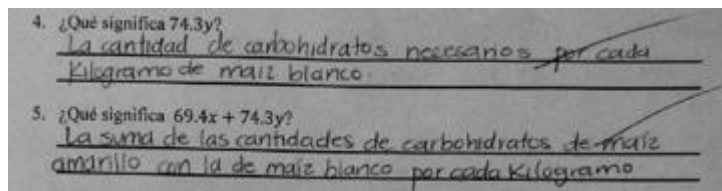 4. ¿Qué significa 74.3y?
La cantidad de carbohidratos necesarios por cada
Kilogramo de maíz blanco.
5. ¿Qué significa 69.4x + 74.3y?
La suma de las cantidades de carbohidratos de maíz
amarillo con la de maíz blanco por cada Kilogramo